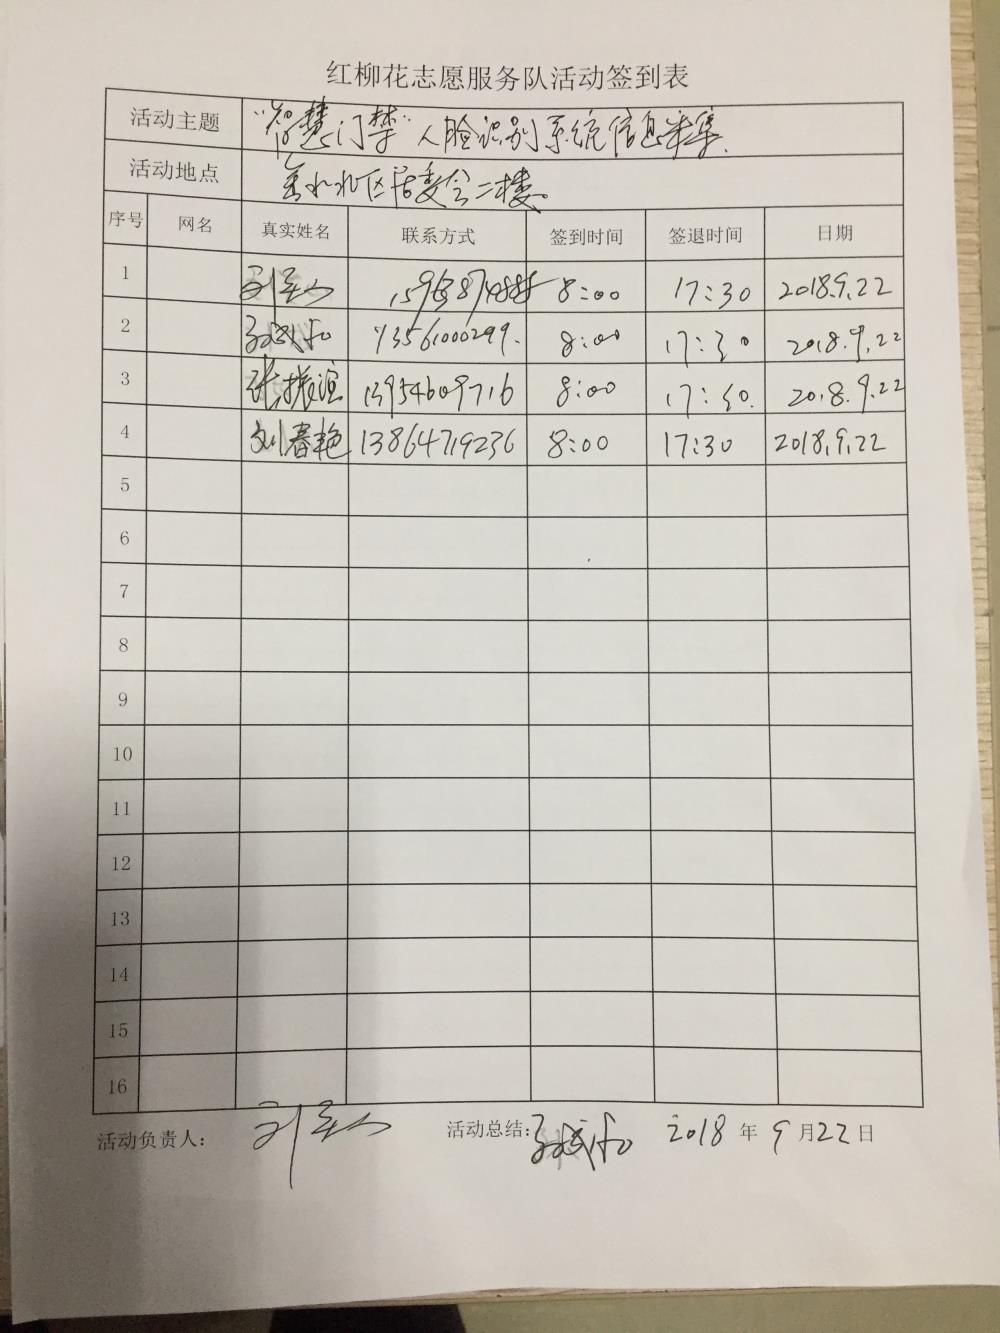 红柳花志愿服务队活动签到表
活动主题 “智慧门禁”人脸识别系统信息采集.
活动地点 金水北区居委会二楼。
序号 网名 真实姓名 联系方式 签到时间 签退时间 日期
1 8:00 17:30 2018.9.22
2 13561000299. 8:00 17:30 2018.9.22
3 张振谊 13954609716 8:00 17:30. 2018.9.22
4 刘春艳 13864719236 8:00 17:30 2018.9.22
5
6
7
8
9
10
11
12
13
14
15
16
活动负责人: 活动总结: 2018 年 9 月 22 日